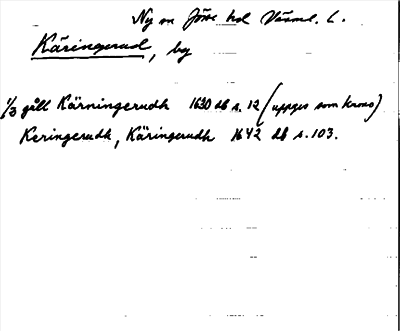 Ny sn Jösse hd Värml. l.
Käringerud, by
1/3 gåll Kärningerudh 1630 db s. 12 (uppges som krono)
Keringerudh, Käringerudh 1642 db s. 103.